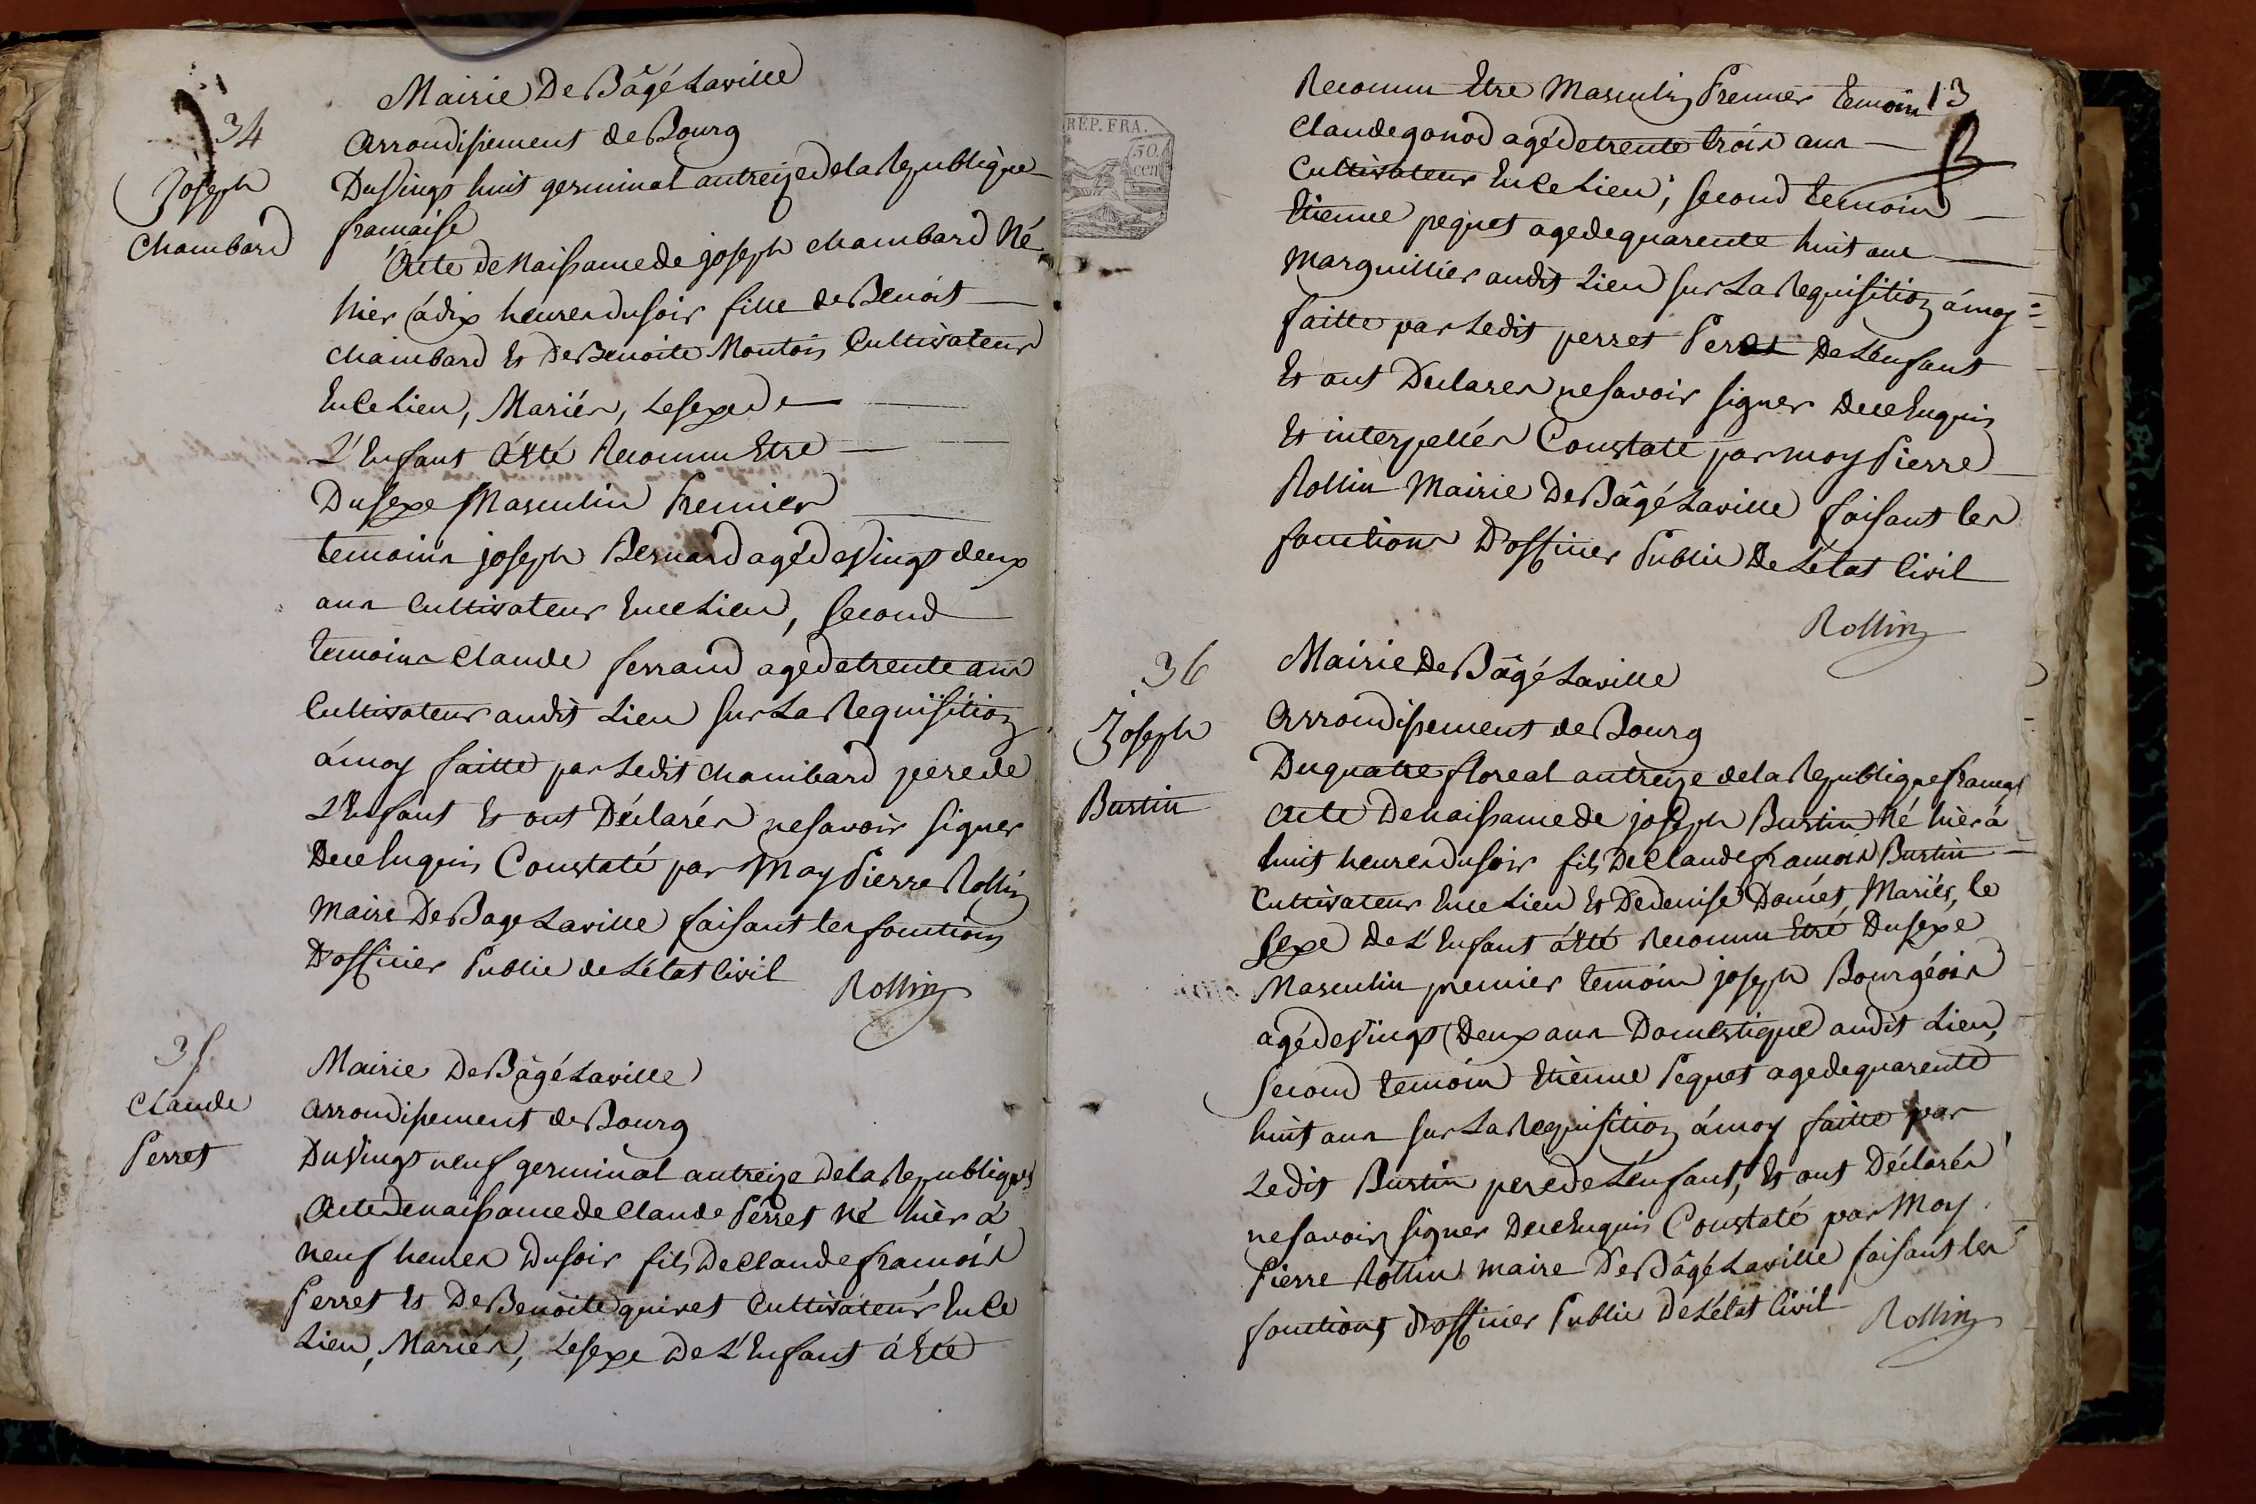 34
Joseph
Chambard
Mairie De Bâgé Laville
arrondissement de Bourg
Du Vingt huit germinal an treize de la Republique
francaise
Acte de Naissance de joseph chambard Né
hier à dix heures du soir fille de Benoit
chambard Et De Benoite Monton Cultivateurs
En Ce Lieu, Mariés, Le sexe de
L'Enfant à Eté Reconnu Etre
Du sexe Masculin Premier
temoins joseph Bernard agé de Vingt deux
ans Cultivateur En ce Lieu, second
temoins Claude ferrand agé de trente ans
Cultivateur audit Lieu sur La Requisition
à moy faitte par Ledit chambard pere de
L'Enfant Et ont Déclarés ne savoir signer
De ce Enquis Constaté par Moy Pierre Rollin
Maire De Bage Laville faisant les fonctions
D'officier Public de L'état Civil
Rollin
35
Claude
Perret
Mairie De Bâgé Laville
arrondissement de Bourg
Du Vingt neuf germinal an treize De la Republique
Acte De naissance de Claude Perret Né hièr à
neuf heures Du soir fils De Claude francois
Perret Et De Benoite quinet Cultivateurs En Ce
Lieu, Mariés, Le sexe De L'Enfant à Eté
13
REP. FRA.
50.
cen
Reconnu Etre Masculin Premier temoin
Claude gonod agé de trente trois ans
Cultivateur En Ce Lieu; second temoin
Etienne pequet agé de quarente huit ans
Marguillier audit Lieu sur La Requisition à moy
faitte par Ledit perret Peret De L'enfant
Et ont Declares ne savoir signer De ce Enquis
Et interpellés Constaté par moy Pierre
Rollin Mairie De Bâgé Laville faisant les
fonctions D'officier Public De L'état Civil
Rollin
36
Joseph
Burtin
Mairie De Bâgé Laville
arrondissement de Bourg
Du quatre floreal an treize de la Republique francaise
acte De naissance de joseph Burtin Né hièr à
huit heures du soir fils De Claude francois Burtin
Cultivateur En ce Lieu Et De denise Domet, Mariés, le
sexe De L'Enfant à Eté Reconnu Etre Du sexe
Masculin premier temoin joseph Bourgéois
agé de Vingt Deux ans Domestique audit Lieu,
second temoin Etienne Pequet agé de quarente
huit ans sur La Requisition à moy faitte par
Ledit Burtin pere de L'enfant, Et ont Déclarés
ne savoir signer De ce Enquis Constaté par Moy
Pierre Rollin maire De Bâgé Laville faisant les
fonctions D'officier Public De L'état Civil
Rollin